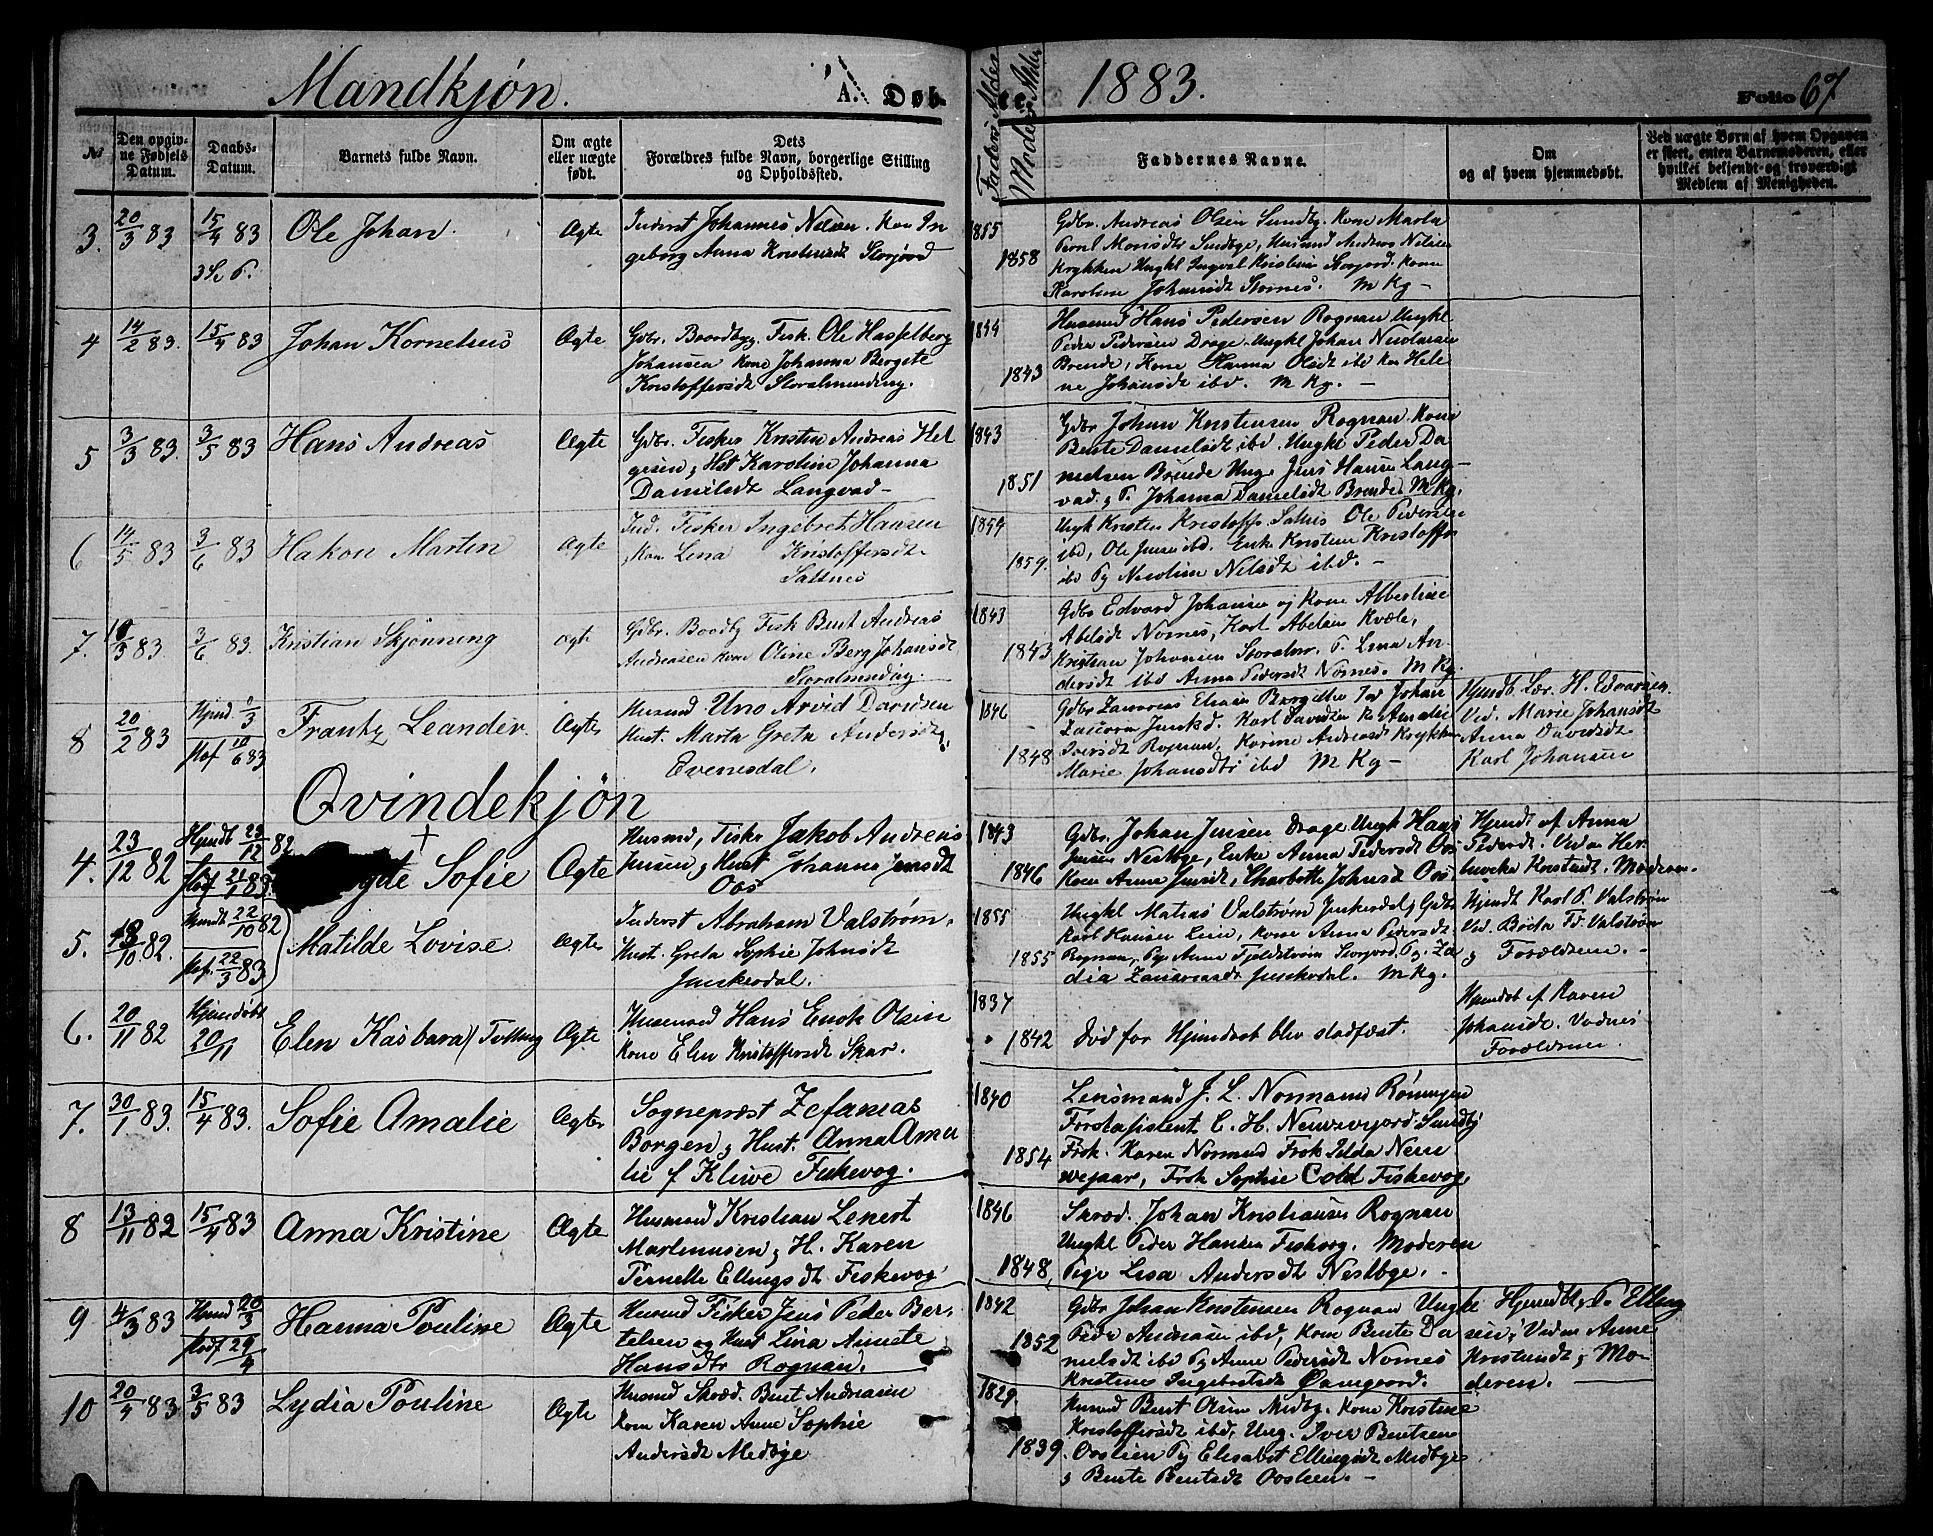 Mandkjøn. A. Døb te. 1883. Folio 67
№
Den opgivne Fødsels Datum.
Daabs-Datum.
Barnets fulde Navn.
Om ægte eller uægte født.
Dets Forældres fulde Navn, borgerlige Stilling og Opholdssted.
Faderens Alder
Moderens Alder
Faddernes Navne.
Om og af hvem hjemmedøbt.
Ved uægte Børn af hvem Opgaven er skeet, enten Barnemoderen, eller hvilket velkjendt og troværdigt Medlem af Menigheden.
3. 20/3 83 15/4 83 Ole Johan. Ægte
3 S. e. P.
Inderst Johannes Nilsen. Kone In
geborg Anna Kristensdt Storjord
1855
1858
Gdbr. Andreas Olsen Sundby. Kone Marta
Pernl Monsdtr Sundbye, Husmd Andreas Nilsen
Krykken Ungkl Ingvel Kristensen Storjord. Kone
Karoline Johansdt Stornes. M Kg –
4 14/2 83. 15/4 83 Johan Kornelius Ægte
Gdbr. Baadbyg. Fisk. Ole Hasselberg
Johansen Kone Johanna Bergete
Kristoffersdt Storalmending.
1854
1843
Husmd Hans Pedersen Rognan Ungkl
Peder Pedersen Drage. Ungkl Johan Nicolaisen
Brende, Kone Hanna Olsdt ibd Kone Hele
ne Johansdt ibd. M Kg. –
5 3/3 83. 3/5 83 Hans Andreas Ægte
Gdbr. Fisker Kristen Andreas Hel
gesen, Hst Karoline Johanna
Danielsdt Langvad –
1843
1851
Gdbr Johan Kristensen Rognan. Kone
Bente Danielsdt ibd. Ungkl Peder Da
nielsen Brende Ung. Jens Hansen Lang
vad. & P. Johanna Danielsdt Brende. M Kg.
6 14/5 83 3/6 83 Hakon Martin Ægte
Ind. Fisker Ingebret Hansen
, Kone Lina Kristoffersdt.
Saltnes
1859
1859.
Ungk Kristen Kristoffs. Saltnes Ole Pedersen
ibd, Ole Jensen ibd. Enke Kristine Kristoffs
ibd Pg Nicoline Nilsdt ibd. –
7. 10/3 83 3/6 83. Kristian Skjønning Ægte
Gdbr. Baadbg Fisk Bent Andreas
Andreasen Kone Oline Berg Johansdt
Storalmending.
1843
1843
Gdbr Edvard Johansen og Kone Albertine
Abelsdt Nornes, Karl Abelsen Kvæle,
Kristian Johansen Storalm. P. Lina An
dersdt ibd Anna Pedersdt Nornes. M Kg.
8 20/2 83 Hjmd. 1/3 stdf 10/6 83 Frantz Leander. Ægte
Husmd Uno Arvid Davidsen
Hust. Marta Greta Andersdt.
Evenesdal.
1846
1848
Gdbr Zakarias Eliasen Bergulli Johan
Zakaria Junkd. Karl Davidsen Kn Amalie
Iversdt Rognan, Karine Andreasdt Krykken
Marie Johansdtr ibd M Kg –
Hjmdt Lær. H. Edvardsen.
Vid. Marie Johansdt
Anna Davidsdt
Karl Johansen
Qvindekjøn
4. 23/12 82 Hjmdt 23/12 82 stdf 21/1 83 Sofie Ægte
Husmd, Fiskr Jakob Andreas
Jensen, Hust Johanna Jensdt
Oos
1843
1846
Gdbr. Johan Jensen Drage Ungk Hans
Jensen Nestbye, Enke Anna Pedersdt Oos
Kone Anne Jensdt, Charlotte Johnsdt Oos.
Hjmdt af Anna
Pedersdt. Vidne Her
Kristensdt. Moderen.
5. 18/10 82. Hjmdt 22/10 82 stdf. 22/3 83 Matilde Lovise Ægte
Inderst Abraham Valstrøm.
Hust. Greta Sophie Johnsdt
Junkerdal.
1855
1855
Ungkl Matias Valstrøm Junkerdal, Gdbr
Karl Hansen Lien, Kone Anna Pedersdt
Rognan, Pge Anne Fjeldstrøm Storjord, Pg. Za
dia Zakariasdt Junkerdal. M Kg.
Hjmdt Karl P. Valstrøm
Vid. Valstrøm
& Forældrene. –
6. 20/11 82 Hjemdøbt 20/11 Elen Kasbara (Tvilling Ægte
Husmand Hans Enok Olsen
Kone Elen Kristoffersdt Skar.
1837
1842
Død før Hjemdaab blev stadfæst.
Hjemdøb af Karen
Johansdt. Vadnes
Forældrene.
7. 30/1 83. 15/4 83. Sofie Amalie Ægte
Sognepræst Zefanias
Borgen & Hust. Anna Ama
lie f. Kluwe Fiskevog.
1840
1854
Lensmand J. L. Normand Røningen
Forstassistent C. H. Sundby
Frok. Karen Normand Frok Nern
Frok Sophie Cold Fiskevog.
8 13/11 82 15/4 83 Anna Kristine Ægte
Husmd Kristian Lenert
Martinusen & H. Karen
Pernelle Ellingsdt Fiskevog
1846
1848
Skræd. Johan Kristiansen Rognan
Ungkl Peder Hansen Fiskvog. Moderen
Pige Lisa Andersdt Nestbye. –
9 4/3 83 Hjmd 20/3 stdf 29/4 Hanna Pouline Ægte
Husmd Fisker Jens Peder Ber-
telsen og Hust Lina Annete
Hansdtr Rognan.
1842
1852
Gdbr Johan Kristensen Rognan Ungkl
Peder Andreasen ibd, Kone Bente Da
nielsdt ibd Pg Anne Pedersdt Nornes
Kristine Ingebretsdt Øamgaard.
Hjemdbt, P. Elling
sen, Vidne Anne
Kristensdt & Mo-
deren.
10 20/4 83 3/5 83 Lydia Pouline Ægte
Husmd Skræd. Bent Andreasen
Kone Karen Anne Sophie
Andersdt Medbye
1829.
1839.
Husmd Bent Olsen Medby. Kone Kristine
Kristoffersdt ibd, Ung. Iver Bentsen
Ooslien Pg Elisabet Ellingsdt Medbye
& Bente Bentsdt Ooslien. –